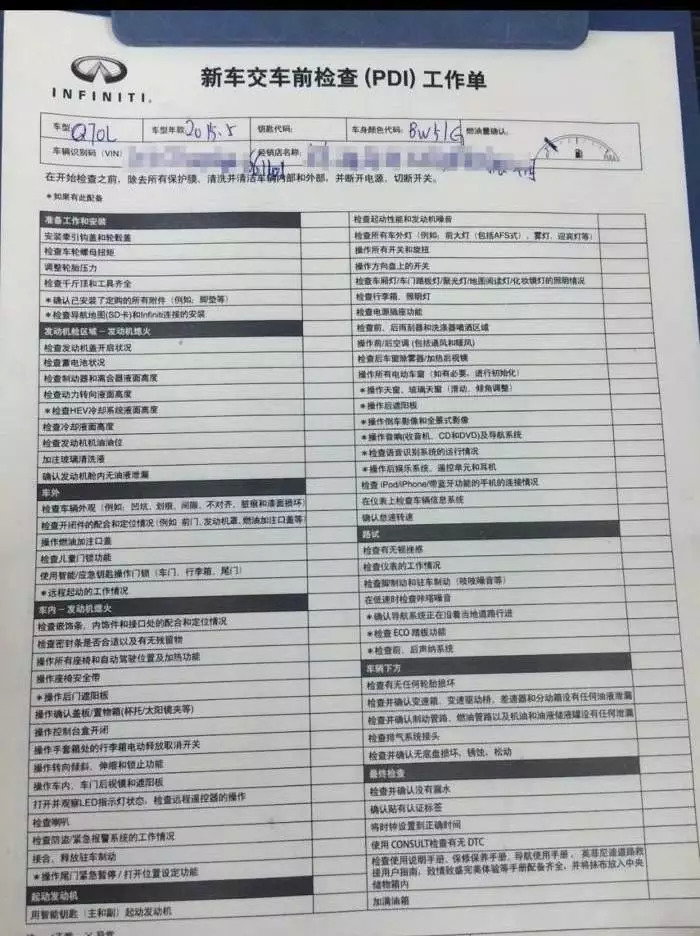 INFINITI.
新车交车前检查(PDI)工作单
车型: Q70L 车型年款: 2015.5 钥匙代码: 车身颜色代码: BW51G 燃油量确认:
车辆识别码(VIN) 经销店名称:
在开始检查之前，除去所有保护膜、清洗并清洁车辆内部和外部，并断开电源、切断开关。
*如果有此配备
准备工作和安装
安装牵引钩盖和轮毂盖
检查车轮螺母扭矩
调整轮胎压力
检查千斤顶和工具齐全
*确认已安装了定购的所有附件（例如，脚垫等）
*检查导航地图(SD卡)和Infiniti连接的安装
发动机舱区域－发动机熄火
检查发动机盖开启状况
检查蓄电池状况
检查制动器和离合器液面高度
检查动力转向液面高度
*检查HEV冷却系统液面高度
检查冷却液面高度
检查发动机机油油位
加注玻璃清洗液
确认发动机舱内无油液泄漏
车外
检查车辆外观（例如：凹坑、划痕、间隙、不对齐、脏痕和漆面损坏）
检查开闭件的配合和定位情况(例如 前门、发动机罩、燃油加注口盖等)
操作燃油加注口盖
检查儿童门锁功能
使用智能/应急钥匙操作门锁（车门、行李箱、尾门）
*远程起动的工作情况
车内－发动机熄火
检查嵌饰条、内饰件和接口处的配合和定位情况
检查密封条是否合适以及有无残留物
操作所有座椅和自动驾驶位置及加热功能
操作座椅安全带
*操作后门遮阳板
操作确认盖板/置物箱(杯托/太阳镜夹等)
操作控制台盒开闭
操作手套箱处的行李箱电动释放取消开关
操作转向倾斜、伸缩和锁止功能
操作车内、车门后视镜和遮阳板
打开并观察LED指示灯状态，检查远程遥控器的操作
检查喇叭
检查防盗/紧急报警系统的工作情况
接合、释放驻车制动
*操作尾门紧急暂停/打开位置设定功能
起动发动机
用智能钥匙（主和副）起动发动机
检查起动性能和发动机噪音
检查所有车外灯（例如：前大灯（包括AFS式），雾灯，迎宾灯等）
操作所有开关和旋扭
操作方向盘上的开关
检查车厢灯/车门踏板灯/聚光灯/地图阅读灯/化妆镜灯的照明情况
检查行李箱、照明灯
检查电源插座功能
检查前、后雨刮器和洗涤器喷洒区域
操作前/后空调 (包括通风和暖风)
检查后车窗除雾器/加热后视镜
操作所有电动车窗（如有必要，进行初始化）
*操作天窗、玻璃天窗（滑动、倾角调整）
*操作后遮阳板
*操作倒车影像和全景式影像
*操作音响(收音机、CD和DVD)及导航系统
*检查语音识别系统的运行情况
*操作后娱乐系统，遥控单元和耳机
检查 iPod/iPhone/带蓝牙功能的手机的连接情况
在仪表上检查车辆信息系统
确认怠速转速
路试
检查有无顿挫感
检查仪表的工作情况
检查脚制动和驻车制动（吱吱噪音等）
在低速时检查咔嗒噪音
*确认导航系统正在沿着当地道路行进
*检查 ECO 踏板功能
*检查前、后声纳系统
车辆下方
检查有无任何轮胎损坏
检查并确认变速箱、变速驱动桥、差速器和分动箱没有任何油液泄漏
检查并确认制动管路、燃油管路以及机油和油液储液罐没有任何泄漏
检查排气系统接头
检查并确认无底盘损坏、锈蚀、松动
最终检查
检查并确认没有漏水
确认贴有认证标签
将时钟设置到正确时间
使用 CONSULT检查有无 DTC
检查使用说明手册、保修保养手册、导航使用手册、英菲尼迪道路救
援用户指南，致情致盛完美体验等手册配备齐全，并将抹布放入中央
储物箱内
加满油箱